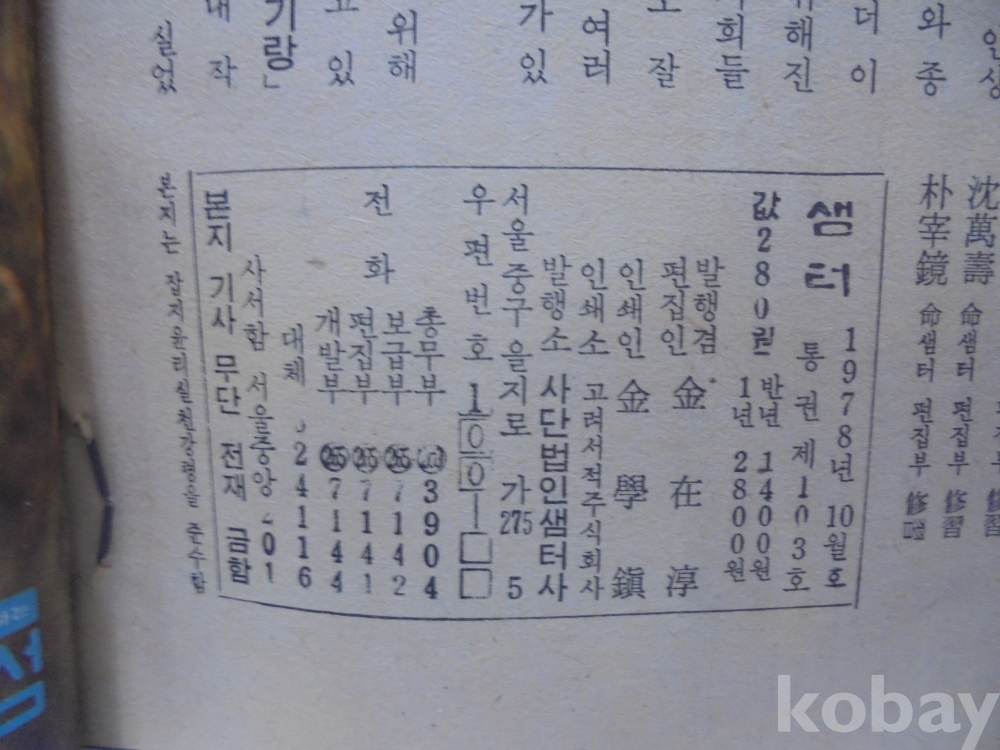 인생
와 종
더 이
위해진
여러
가 있
위해
고 있
기랑」
내 작
실었
沈萬壽 命샘터 편집부 修習
朴宰鏡 命샘터 편집부 修習
샘터 1978년 10월호
통권 제103호
값 280원 반년 1400원
1년 2800원
발행겸
편집인 金在淳
인쇄인 金學鎭
인쇄소 고려서적주식회사
발행소 사단법인샘터사
서울중구을지로 가275 5
우편번호 100-□□
전화 총무부 3904
보급부 7142
편집부 7141
개발부 7144
대체
사서함 서울중앙
본지 기사 무단 전재 금함
본지는 잡지윤리실천강령을 준수함
섬
kobay